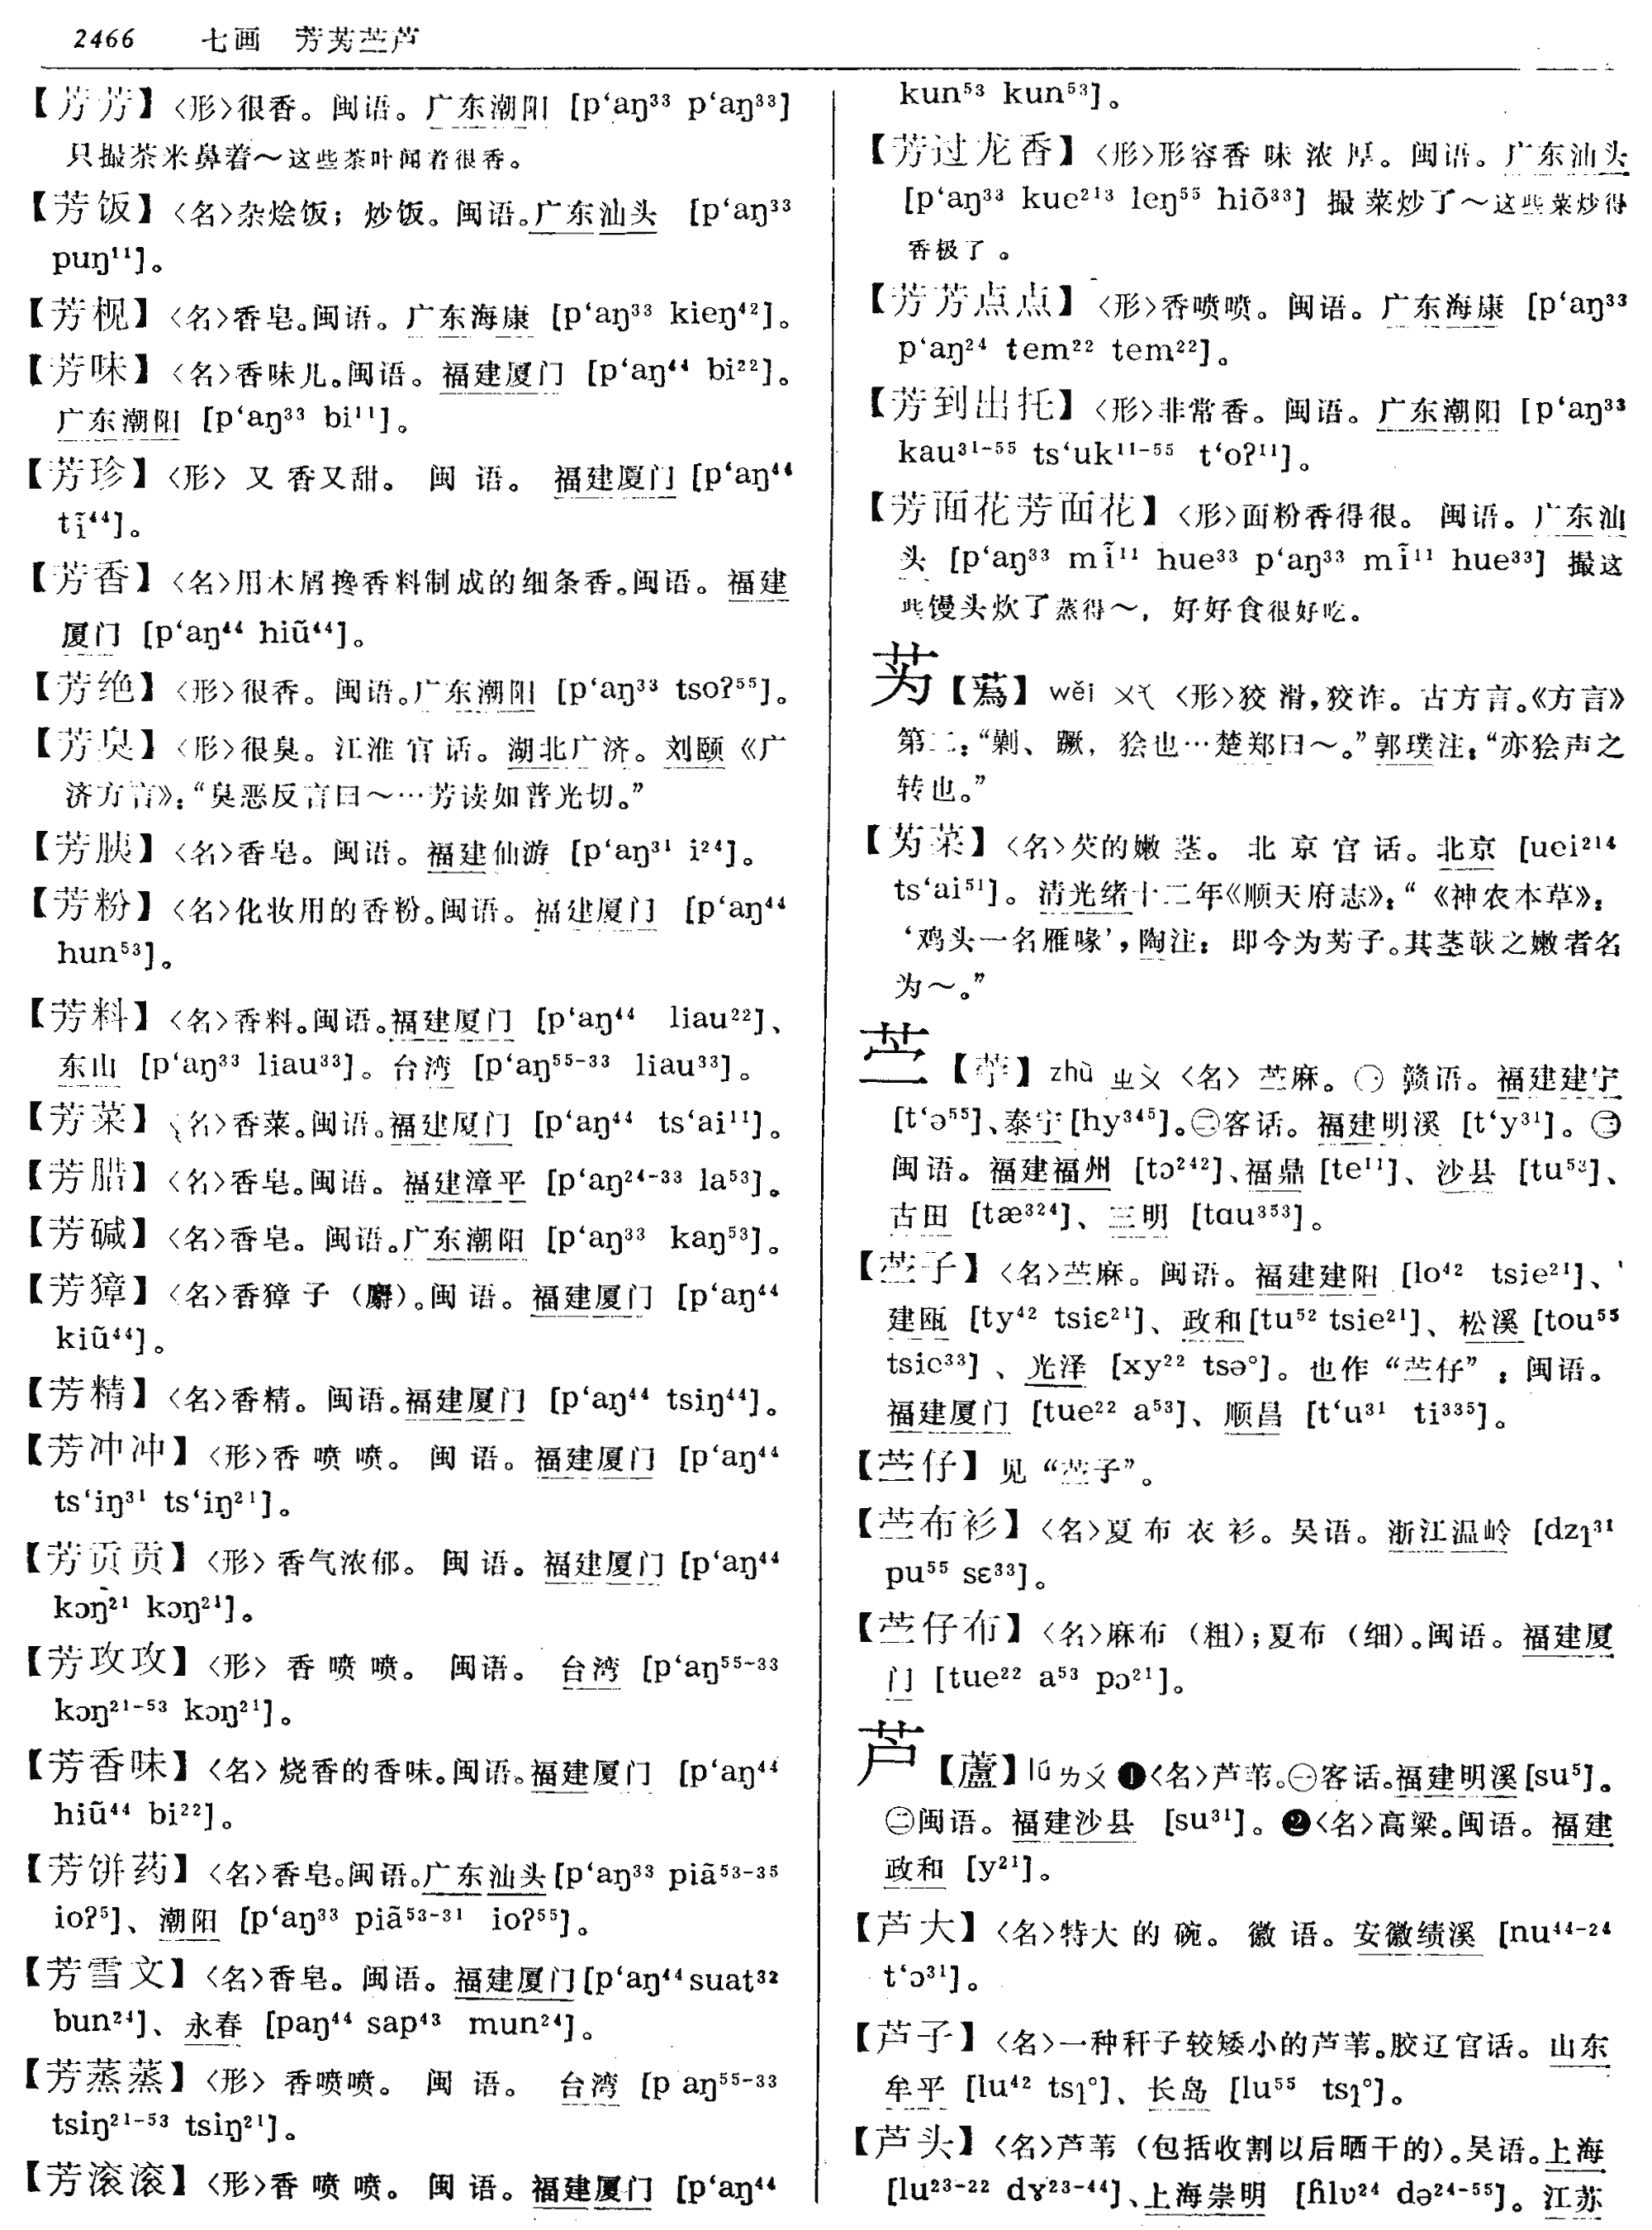 2466 七画 芳䓕苎芦
【芳芳】〈形〉很香。闽语。广东潮阳 [p‘aŋ³³ p‘aŋ³³]
只撮茶米鼻着～这些茶叶闻着很香。
【芳饭】〈名〉杂烩饭；炒饭。闽语。广东汕头 [p‘aŋ³³
puŋ¹¹]。
【芳枧】〈名〉香皂。闽语。广东海康 [p‘aŋ³³ kieŋ⁴²]。
【芳味】〈名〉香味儿。闽语。福建厦门 [p‘aŋ⁴⁴ bi²²]。
广东潮阳 [p‘aŋ³³ bi¹¹]。
【芳珍】〈形〉又香又甜。闽语。福建厦门 [p‘aŋ⁴⁴
tĩ⁴⁴]。
【芳香】〈名〉用木屑搀香料制成的细条香。闽语。福建
厦门 [p‘aŋ⁴⁴ hiũ⁴⁴]。
【芳绝】〈形〉很香。闽语。广东潮阳 [p‘aŋ³³ tsoʔ⁵⁵]。
【芳臭】〈形〉很臭。江淮官话。湖北广济。刘颐《广
济方言》：“臭恶反言曰～…芳读如普光切。”
【芳胰】〈名〉香皂。闽语。福建仙游 [p‘aŋ³¹ i²⁴]。
【芳粉】〈名〉化妆用的香粉。闽语。福建厦门 [p‘aŋ⁴⁴
hun⁵³]。
【芳料】〈名〉香料。闽语。福建厦门 [p‘aŋ⁴⁴ liau²²]、
东山 [p‘aŋ³³ liau³³]。台湾 [p‘aŋ⁵⁵⁻³³ liau³³]。
【芳菜】〈名〉香菜。闽语。福建厦门 [p‘aŋ⁴⁴ ts‘ai¹¹]。
【芳腊】〈名〉香皂。闽语。福建漳平 [p‘aŋ²⁴⁻³³ la⁵³]。
【芳碱】〈名〉香皂。闽语。广东潮阳 [p‘aŋ³³ kaŋ⁵³]。
【芳獐】〈名〉香獐子（麝）。闽语。福建厦门 [p‘aŋ⁴⁴
kiũ⁴⁴]。
【芳精】〈名〉香精。闽语。福建厦门 [p‘aŋ⁴⁴ tsiŋ⁴⁴]。
【芳冲冲】〈形〉香喷喷。闽语。福建厦门 [p‘aŋ⁴⁴
ts‘iŋ³¹ ts‘iŋ²¹]。
【芳贡贡】〈形〉香气浓郁。闽语。福建厦门 [p‘aŋ⁴⁴
kɔŋ²¹ kɔŋ²¹]。
【芳攻攻】〈形〉香喷喷。闽语。台湾 [p‘aŋ⁵⁵⁻³³
kɔŋ²¹⁻⁵³ kɔŋ²¹]。
【芳香味】〈名〉烧香的香味。闽语。福建厦门 [p‘aŋ⁴⁴
hiũ⁴⁴ bi²²]。
【芳饼药】〈名〉香皂。闽语。广东汕头 [p‘aŋ³³ piã⁵³⁻³⁵
ioʔ⁵]、潮阳 [p‘aŋ³³ piã⁵³⁻³¹ ioʔ⁵⁵]。
【芳雪文】〈名〉香皂。闽语。福建厦门 [p‘aŋ⁴⁴ suat³²
bun²⁴]、永春 [paŋ⁴⁴ sap⁴³ mun²⁴]。
【芳蒸蒸】〈形〉香喷喷。闽语。台湾 [p aŋ⁵⁵⁻³³
tsiŋ²¹⁻⁵³ tsiŋ²¹]。
【芳滚滚】〈形〉香喷喷。闽语。福建厦门 [p‘aŋ⁴⁴
kun⁵³ kun⁵³]。
【芳过龙香】〈形〉形容香味浓厚。闽语。广东汕头
[p‘aŋ³³ kue²¹³ leŋ⁵⁵ hiõ³³] 撮菜炒了～这些菜炒得
香极了。
【芳芳点点】〈形〉香喷喷。闽语。广东海康 [p‘aŋ³³
p‘aŋ²⁴ tem²² tem²²]。
【芳到出托】〈形〉非常香。闽语。广东潮阳 [p‘aŋ³³
kau³¹⁻⁵⁵ ts‘uk¹¹⁻⁵⁵ t‘oʔ¹¹]。
【芳面花芳面花】〈形〉面粉香得很。闽语。广东汕
头 [p‘aŋ³³ mĩ¹¹ hue³³ p‘aŋ³³ mĩ¹¹ hue³³] 撮这
些馒头炊了蒸得～，好好食很好吃。
䓕【蔿】wěi ㄨㄟˇ〈形〉狡滑，狡诈。古方言。《方言》
第二：“剿、蹶，狯也…楚郑曰～。”郭璞注：“亦狯声之
转也。”
【䓕菜】〈名〉芡的嫩茎。北京官话。北京 [uei²¹⁴
ts‘ai⁵¹]。清光绪十二年《顺天府志》：“《神农本草》：
‘鸡头一名雁喙’，陶注：即今为䓕子。其茎䓈之嫩者名
为～。”
苎【苧】zhù ㄓㄨˋ〈名〉苎麻。㊀赣语。福建建宁
[t‘ə⁵⁵]、泰宁 [hy³⁴⁵]。㊁客话。福建明溪 [t‘y³¹]。㊂
闽语。福建福州 [tɔ²⁴²]、福鼎 [te¹¹]、沙县 [tu⁵³]、
古田 [tæ³²⁴]、三明 [tɑu³⁵³]。
【苎子】〈名〉苎麻。闽语。福建建阳 [lo⁴² tsie²¹]、
建瓯 [ty⁴² tsiɛ²¹]、政和 [tu⁵² tsie²¹]、松溪 [tou⁵⁵
tsie³³]、光泽 [xy²² tsə°]。也作“苎仔”：闽语。
福建厦门 [tue²² a⁵³]、顺昌 [t‘u³¹ ti³³⁵]。
【苎仔】见“苎子”。
【苎布衫】〈名〉夏布衣衫。吴语。浙江温岭 [dzʅ³¹
pu⁵⁵ sɛ³³]。
【苎仔布】〈名〉麻布（粗）；夏布（细）。闽语。福建厦
门 [tue²² a⁵³ pɔ²¹]。
芦【蘆】lú ㄌㄨˊ ❶〈名〉芦苇。㊀客话。福建明溪 [su⁵]。
㊁闽语。福建沙县 [su³¹]。❷〈名〉高粱。闽语。福建
政和 [y²¹]。
【芦大】〈名〉特大的碗。徽语。安徽绩溪 [nu⁴⁴⁻²⁴
t‘ɔ³¹]。
【芦子】〈名〉一种秆子较矮小的芦苇。胶辽官话。山东
牟平 [lu⁴² tsʅ°]、长岛 [lu⁵⁵ tsʅ°]。
【芦头】〈名〉芦苇（包括收割以后晒干的）。吴语。上海
[lu²³⁻²² dɤ²³⁻⁴⁴]、上海崇明 [ɦlʋ²⁴ də²⁴⁻⁵⁵]。江苏